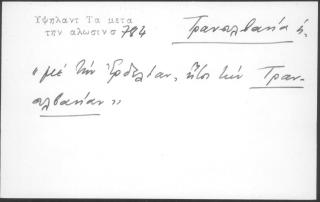 Υψηλαντ Τα μετα
την αλωσιν σ 784
Τρανσλβανία ἡ.
« μὲ τὴν Ἐρδελίαν, ἤτοι τὴν Τραν-
σλβανίαν »